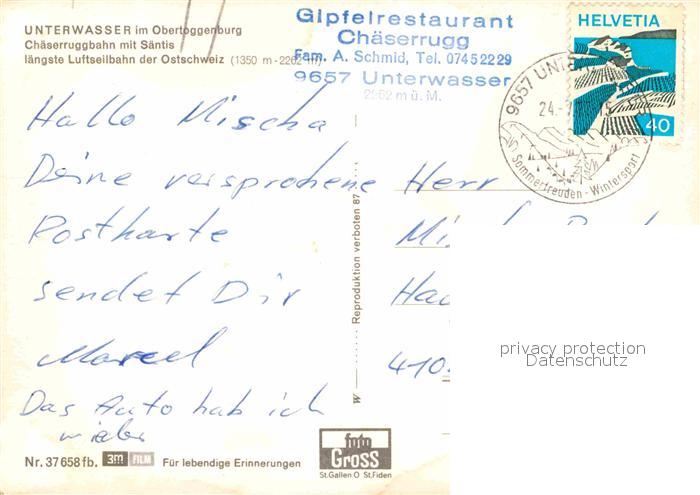 UNTERWASSER im Obertoggenburg
Chäserruggbahn mit Säntis
längste Luftseilbahn der Ostschweiz (1350 m - 2262 m)
Gipfelrestaurant
Chäserrugg
Fam. A. Schmid, Tel. 074 5 22 29
9657 Unterwasser
2262 m ü. M.
HELVETIA
40
9657 UNTER
24.-
Sommerfreuden - Wintersport
Hallo Mischa
Deine versprohene
Postkarte
sendet Dir
Marcel
Das Auto hab ich
wieder
Herr
Mi
Ha
410
Reproduktion verboten 87
W
privacy protection
Datenschutz
foto
GROSS
St.Gallen O St.Fiden
Nr. 37 658 fb. 3m FILM Für lebendige Erinnerungen